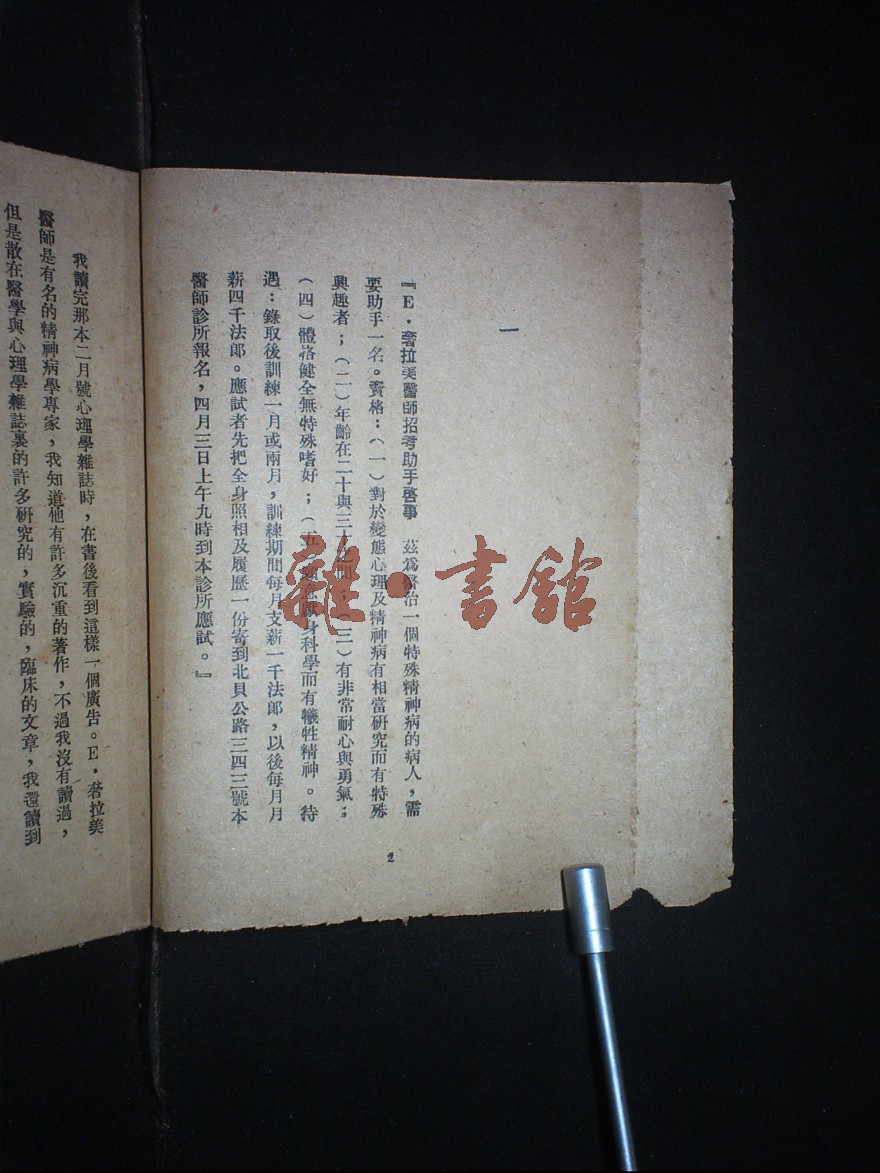 一
『E·奢拉美醫師招考助手啓事　茲爲醫治一個特殊精神病的病人，需
要助手一名。資格：（一）對於變態心理及精神病有相當研究而有特殊
興趣者；（二）年齡在二十與三十之間；（三）有非常耐心與勇氣；
（四）體格健全無特殊嗜好；（五）身科學而有犧牲精神。待
遇：錄取後訓練一月或兩月，訓練期間每月支薪一千法郎，以後每月月
薪四千法郎。應試者先把全身照相及履歷一份寄到北貝公路三四三號本
醫師診所報名，四月三日上午九時到本診所應試。』
2
我讀完那本二月號心理學雜誌時，在書後看到這樣一個廣告。E·奢拉美
醫師是有名的精神病學專家，我知道他有許多沉重的著作，不過我沒有讀過，
但是散在醫學與心理學雜誌裏的許多研究的，實驗的，臨床的文章，我還讀到
雜·書館